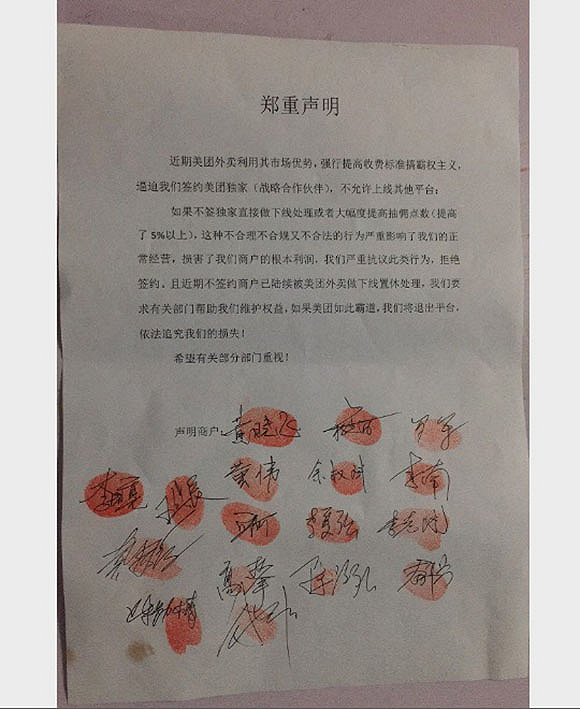 郑重声明
近期美团外卖利用其市场优势，强行提高收费标准搞霸权主义，
逼迫我们签约美团独家（战略合作伙伴），不允许上线其他平台；
如果不签独家直接做下线处理或者大幅度提高抽佣点数（提高
了 5%以上），这种不合理不合规又不合法的行为严重影响了我们的正
常经营，损害了我们商户的根本利润，我们严重抗议此类行为，拒绝
签约。且近期不签约商户已陆续被美团外卖做下线置休处理，我们要
求有关部门帮助我们维护权益，如果美团如此霸道，我们将退出平台，
依法追究我们的损失！
希望有关部分部门重视！
声明商户：黄晓飞
黄伟 余叔斌 李南
李夏弘